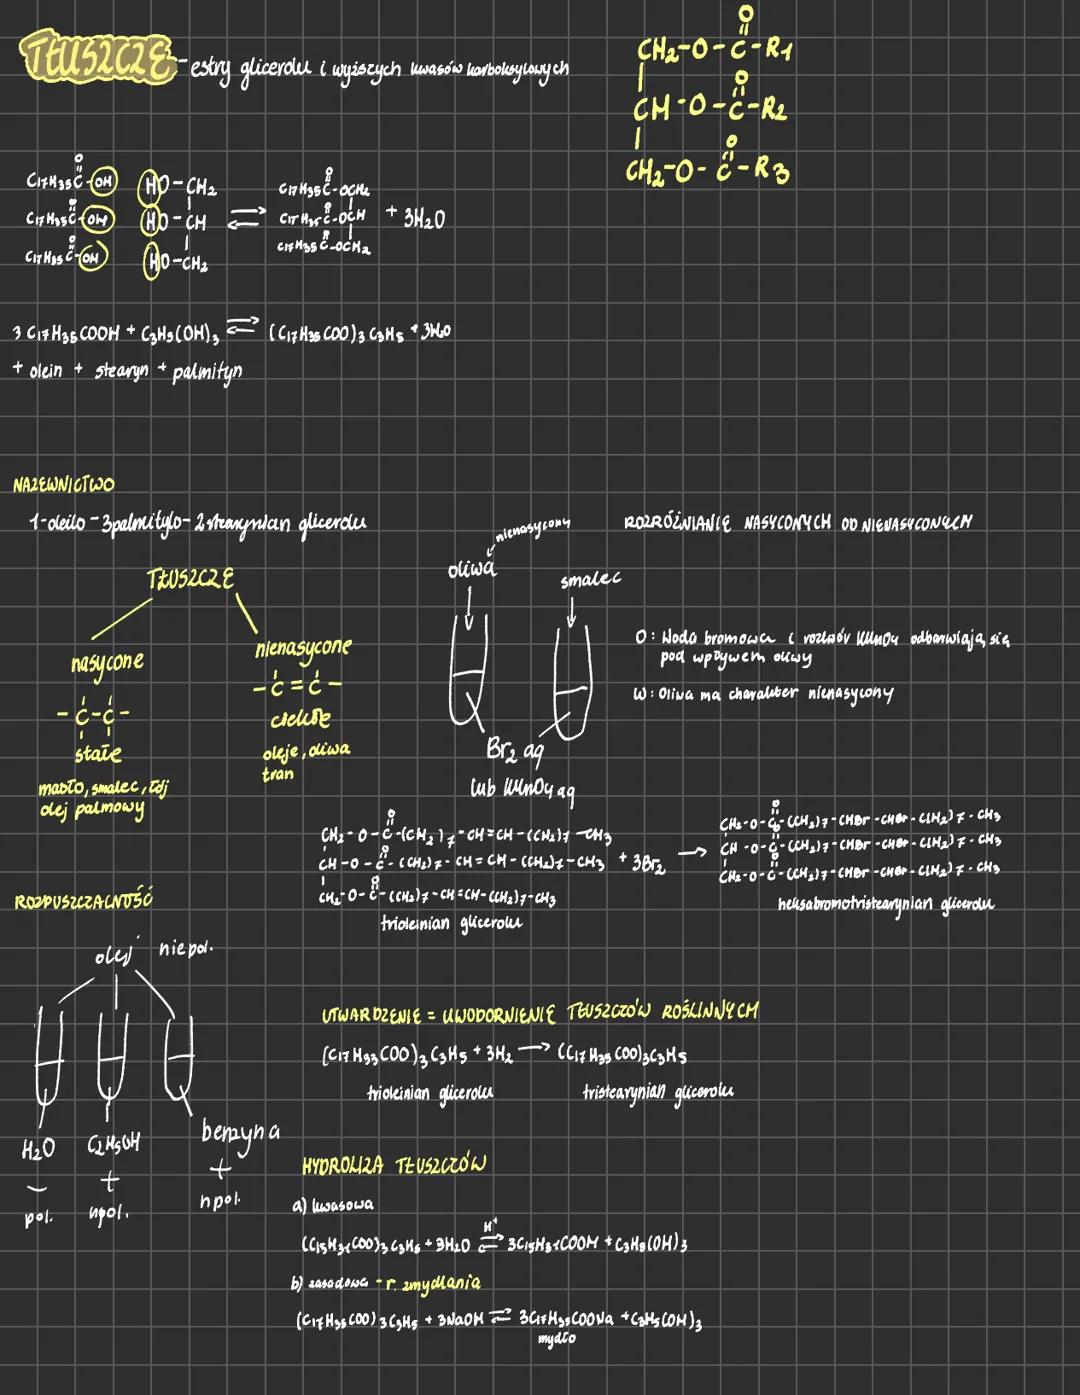 TŁUSZCZE - estry glicerolu i wyższych kwasów karboksylowych
CH2-O-C-R1
O
CH-O-C-R2
O
CH2-O-C-R3
O
C17H35C-OH HO-CH2 C17H35C-OCH2
C17H35C-OH HO-CH ⇌ C17H35C-OCH + 3H2O
C17H35C-OH HO-CH2 C17H35C-OCH2
3 C17H35COOH + C3H5(OH)3 ⇌ (C17H35COO)3C3H5 + 3H2O
+ olein + stearyn + palmityn
NAZEWNICTWO
1-oleilo-3palmitylo-2stearynian glicerolu
TŁUSZCZE
nasycone
-C-C-
stałe
masło, smalec, łój
olej palmowy
nienasycone
-C=C-
ciekłe
oleje, oliwa
tran
ROZRÓŻNIANIE NASYCONYCH OD NIENASYCONYCH
nienasycony
oliwa
smalec
Br2 aq
lub KMnO4 aq
O: Woda bromowa i roztwór KMnO4 odbarwiają się
pod wpływem oliwy
W: Oliwa ma charakter nienasycony
CH2-O-C-(CH2)7-CH=CH-(CH2)7-CH3
CH-O-C-(CH2)7-CH=CH-(CH2)7-CH3 + 3Br2 →
CH2-O-C-(CH2)7-CH=CH-(CH2)7-CH3
trioleinian glicerolu
CH2-O-C-(CH2)7-CHBr-CHBr-(CH2)7-CH3
CH-O-C-(CH2)7-CHBr-CHBr-(CH2)7-CH3
CH2-O-C-(CH2)7-CHBr-CHBr-(CH2)7-CH3
heksabromotristearynian glicerolu
ROZPUSZCZALNOŚĆ
olej niepol.
H2O C2H5OH benzyna
- + +
pol. npol. npol.
UTWARDZENIE = UWODORNIENIE TŁUSZCZÓW ROŚLINNYCH
(C17H33COO)3C3H5 + 3H2 → (C17H35COO)3C3H5
trioleinian glicerolu tristearynian glicerolu
HYDROLIZA TŁUSZCZÓW
a) kwasowa
H+
(C15H31COO)3C3H5 + 3H2O ⇌ 3C15H31COOH + C3H5(OH)3
b) zasadowa - r. zmydlania
(C17H35COO)3C3H5 + 3NaOH ⇌ 3C17H35COONa + C3H5(OH)3
mydło